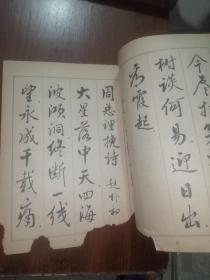 树谈何易迎日出
看霞起
周总理挽诗 赵朴初
大星落中天四海
波澒洞终断一线
望永成千载痛